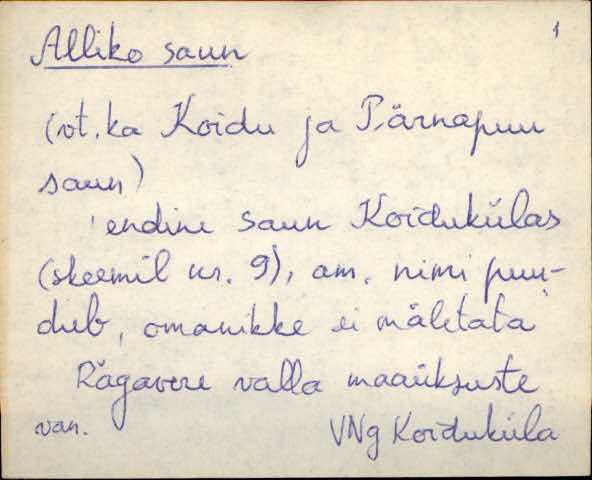 1
Alliko saun
(vt. ka Koidu ja Pärnapuu
saun)
endine saun Koidukülas
(skeemil nr. 9), am. nimi puu-
dub, omanikke ei mäletata
Rägavere valla maaüksuste
van. VNg Koiduküla